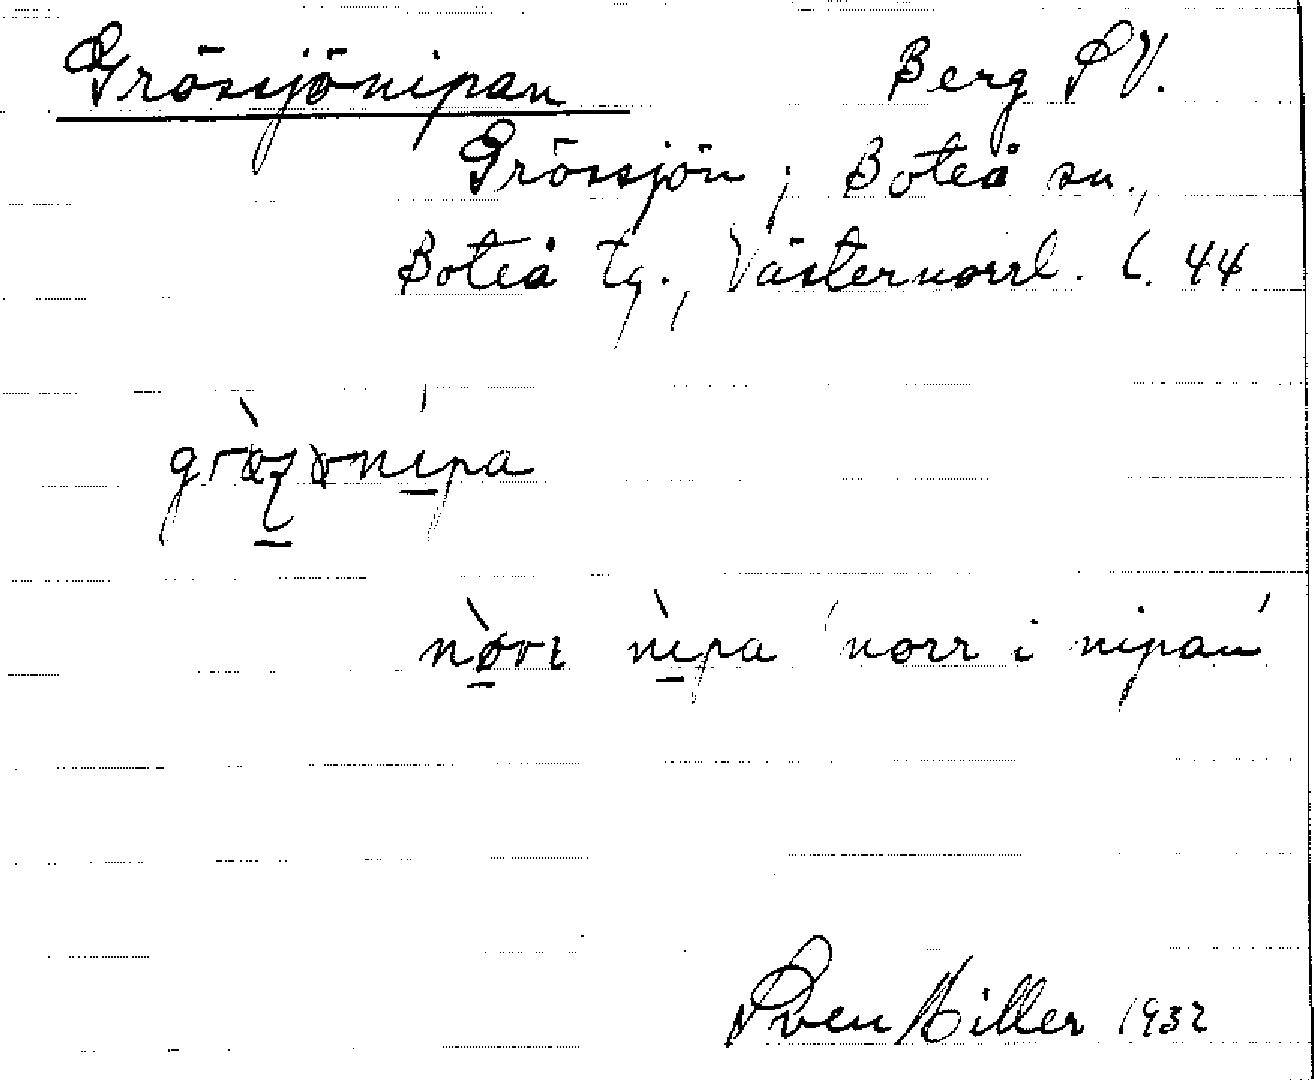 Grössjönipan Berg SV.
Grössjön; Boteå sn.,
Boteå tg., Västernorrl. l. 44
nipa 'norr i nipan'
Sven Hiller 1932